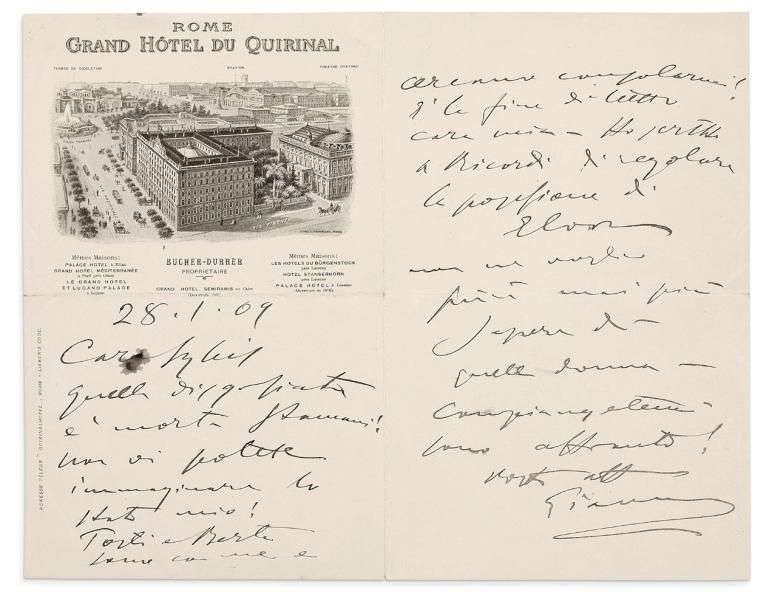 ROME
GRAND HÔTEL DU QUIRINAL
THERMES DE DIOCLETIEN
STATION
THEATRE COSTANZI
Mêmes Maisons:
PALACE HOTEL à Milan
GRAND HOTEL MÉDITERRANÉE
à Pegli près Gênes
LE GRAND HOTEL
ET LUGANO PALACE
à Lugano
BUCHER-DURRER
PROPRIÉTAIRE
GRAND HOTEL SEMIRAMIS au Caire
Mêmes Maisons:
LES HOTELS DU BÜRGENSTOCK
près Lucerne
HOTEL STANSERHORN
près Lucerne
PALACE HOTEL à Lucerne
28.1.09
Cara Sybil
quella disgraziata
è morta stamani!
non vi potete
immaginare lo
stato mio!
Tosti e Berta
sono con me e
cercano consolarmi!
È la fine di tutto
cara mia - Ho scritto
a Ricordi di regolare
la posizione di
Elvira
non ne voglio
più mai più
sapere di
quella donna -
Compiangetemi
sono affranto!
vostro aff